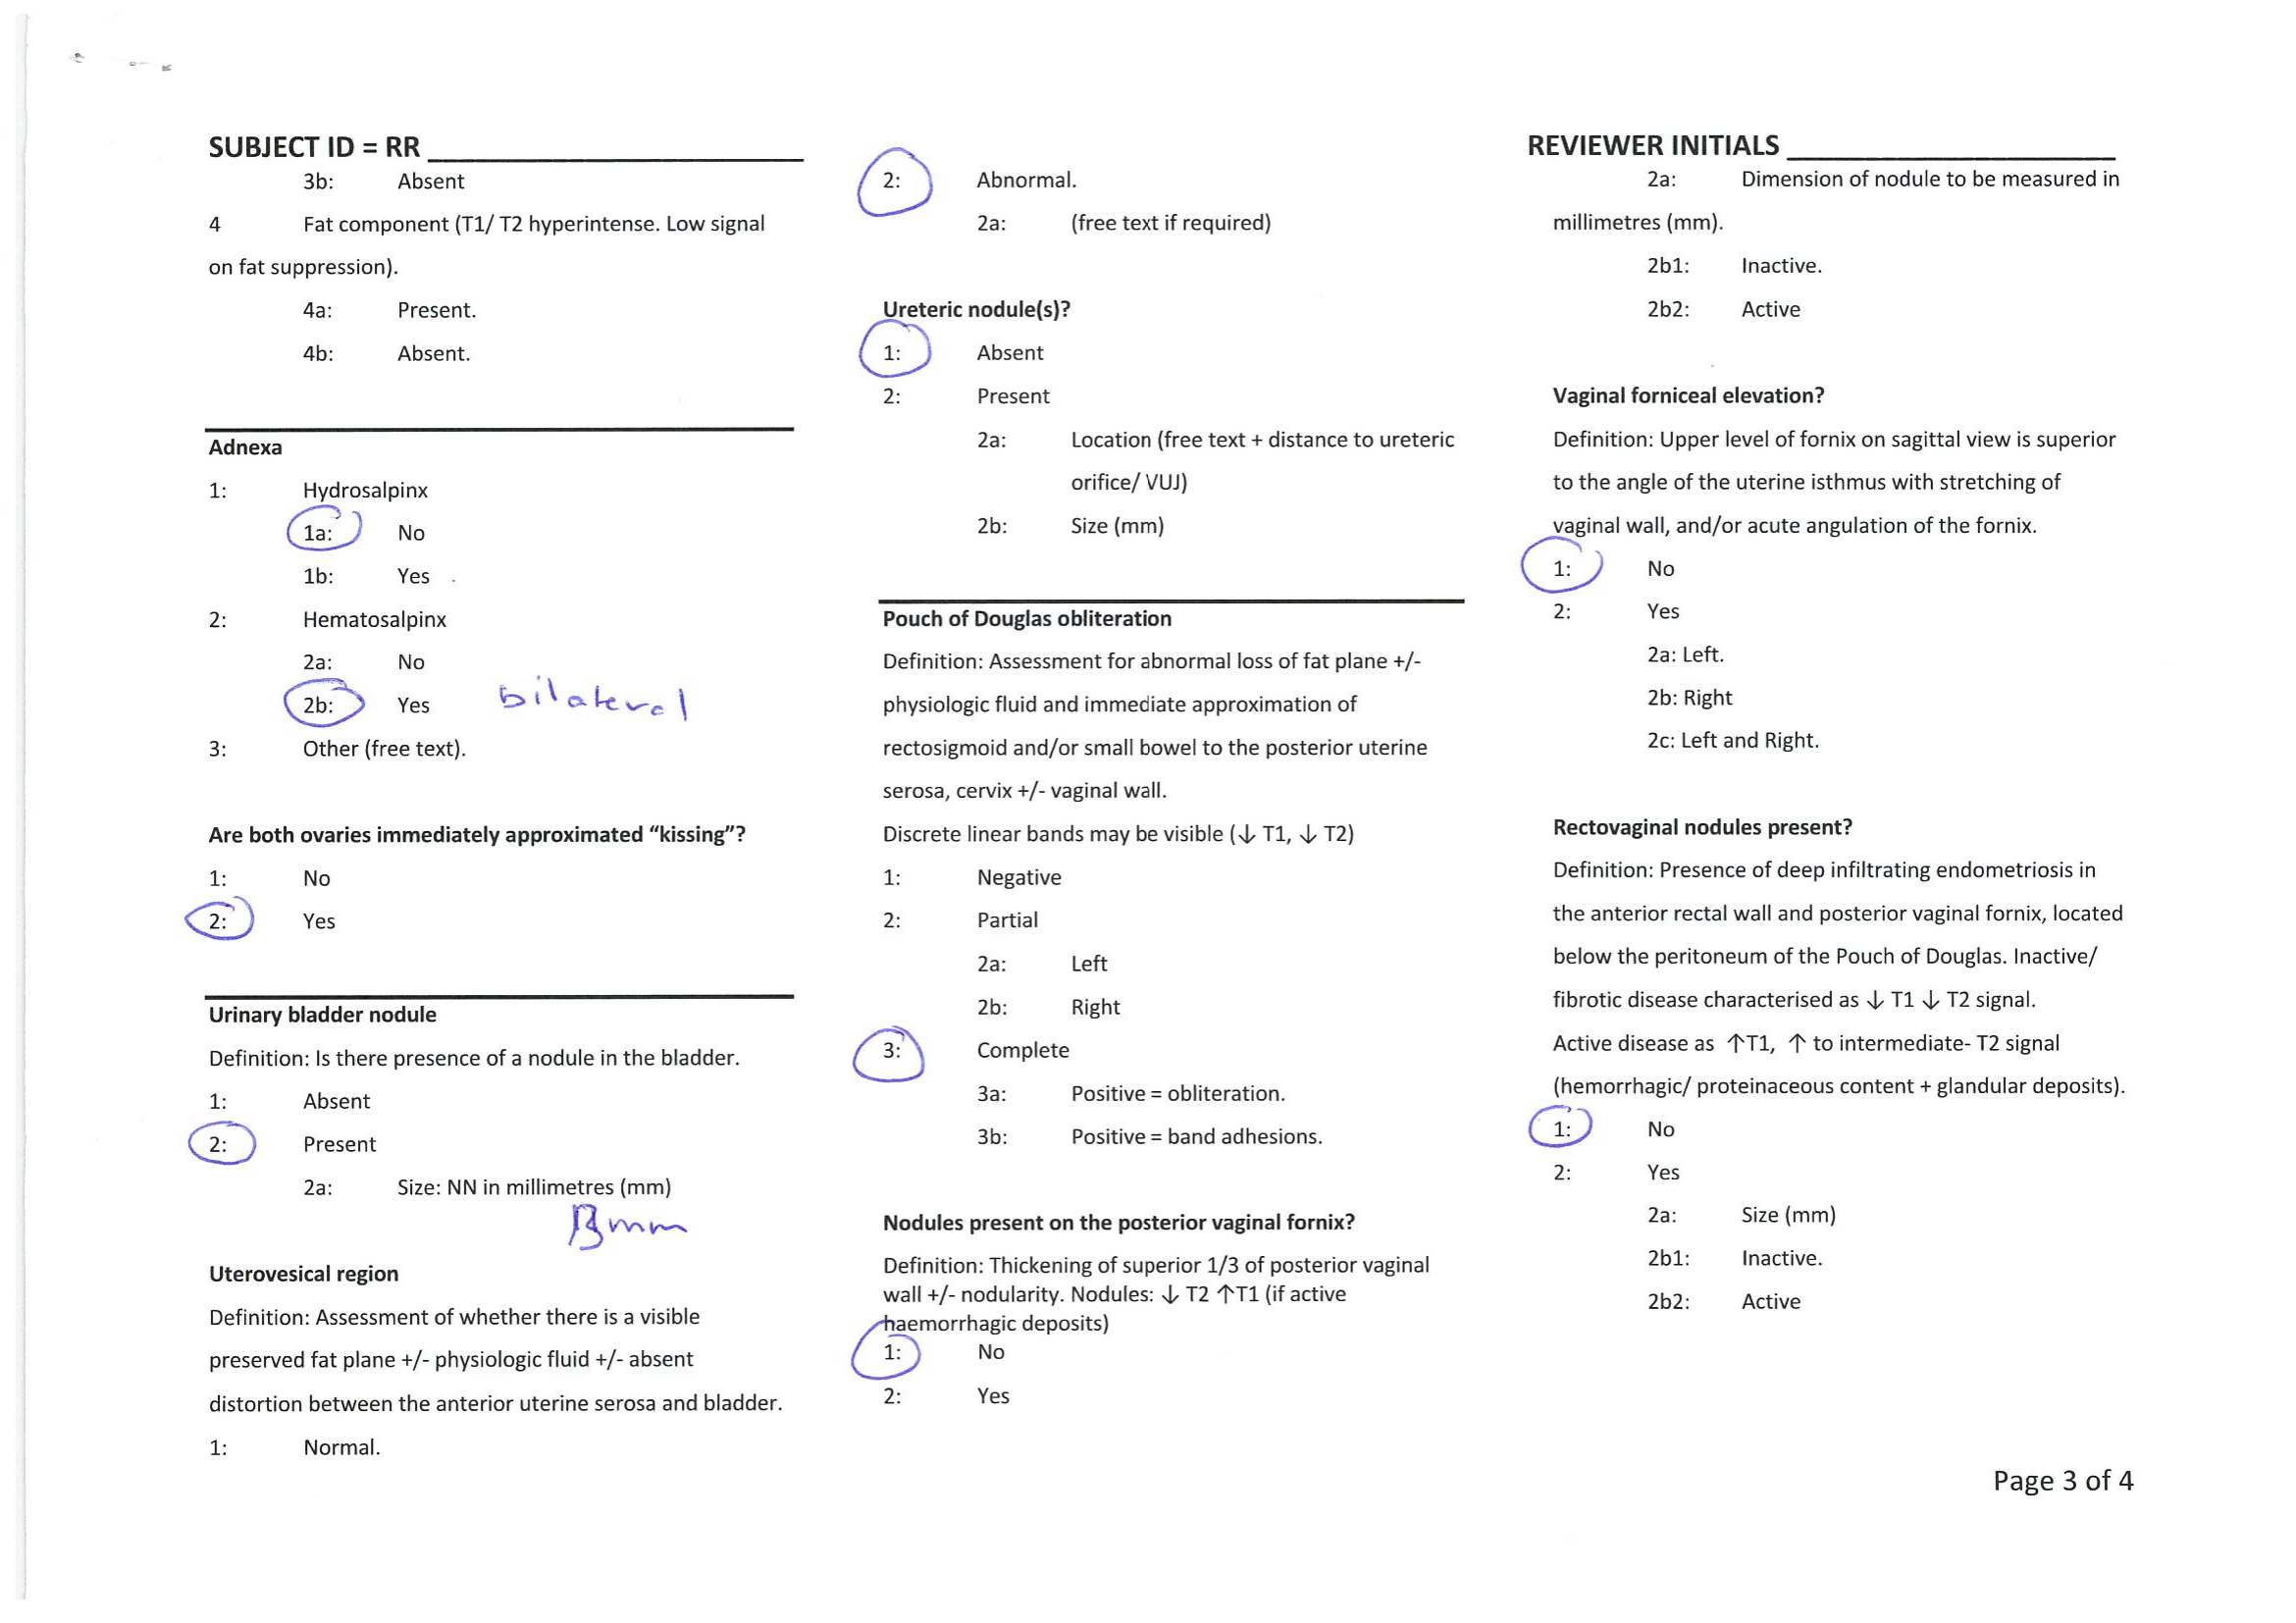 SUBJECT ID = RR
3b: Absent
4 Fat component (T1/ T2 hyperintense. Low signal
on fat suppression).
4a: Present.
4b: Absent.
Adnexa
1: Hydrosalpinx
1a: No
1b: Yes
2: Hematosalpinx
2a: No
2b: Yes bilateral
3: Other (free text).
Are both ovaries immediately approximated “kissing”?
1: No
2: Yes
Urinary bladder nodule
Definition: Is there presence of a nodule in the bladder.
1: Absent
2: Present
2a: Size: NN in millimetres (mm)
mm
Uterovesical region
Definition: Assessment of whether there is a visible
preserved fat plane +/- physiologic fluid +/- absent
distortion between the anterior uterine serosa and bladder.
1: Normal.
2: Abnormal.
2a: (free text if required)
Ureteric nodule(s)?
1: Absent
2: Present
2a: Location (free text + distance to ureteric
orifice/ VUJ)
2b: Size (mm)
Pouch of Douglas obliteration
Definition: Assessment for abnormal loss of fat plane +/-
physiologic fluid and immediate approximation of
rectosigmoid and/or small bowel to the posterior uterine
serosa, cervix +/- vaginal wall.
Discrete linear bands may be visible (↓ T1, ↓ T2)
1: Negative
2: Partial
2a: Left
2b: Right
3: Complete
3a: Positive = obliteration.
3b: Positive = band adhesions.
Nodules present on the posterior vaginal fornix?
Definition: Thickening of superior 1/3 of posterior vaginal
wall +/- nodularity. Nodules: ↓ T2 ↑T1 (if active
haemorrhagic deposits)
1: No
2: Yes
REVIEWER INITIALS
2a: Dimension of nodule to be measured in
millimetres (mm).
2b1: Inactive.
2b2: Active
Vaginal forniceal elevation?
Definition: Upper level of fornix on sagittal view is superior
to the angle of the uterine isthmus with stretching of
vaginal wall, and/or acute angulation of the fornix.
1: No
2: Yes
2a: Left.
2b: Right
2c: Left and Right.
Rectovaginal nodules present?
Definition: Presence of deep infiltrating endometriosis in
the anterior rectal wall and posterior vaginal fornix, located
below the peritoneum of the Pouch of Douglas. Inactive/
fibrotic disease characterised as ↓ T1 ↓ T2 signal.
Active disease as ↑T1, ↑ to intermediate- T2 signal
(hemorrhagic/ proteinaceous content + glandular deposits).
1: No
2: Yes
2a: Size (mm)
2b1: Inactive.
2b2: Active
Page 3 of 4